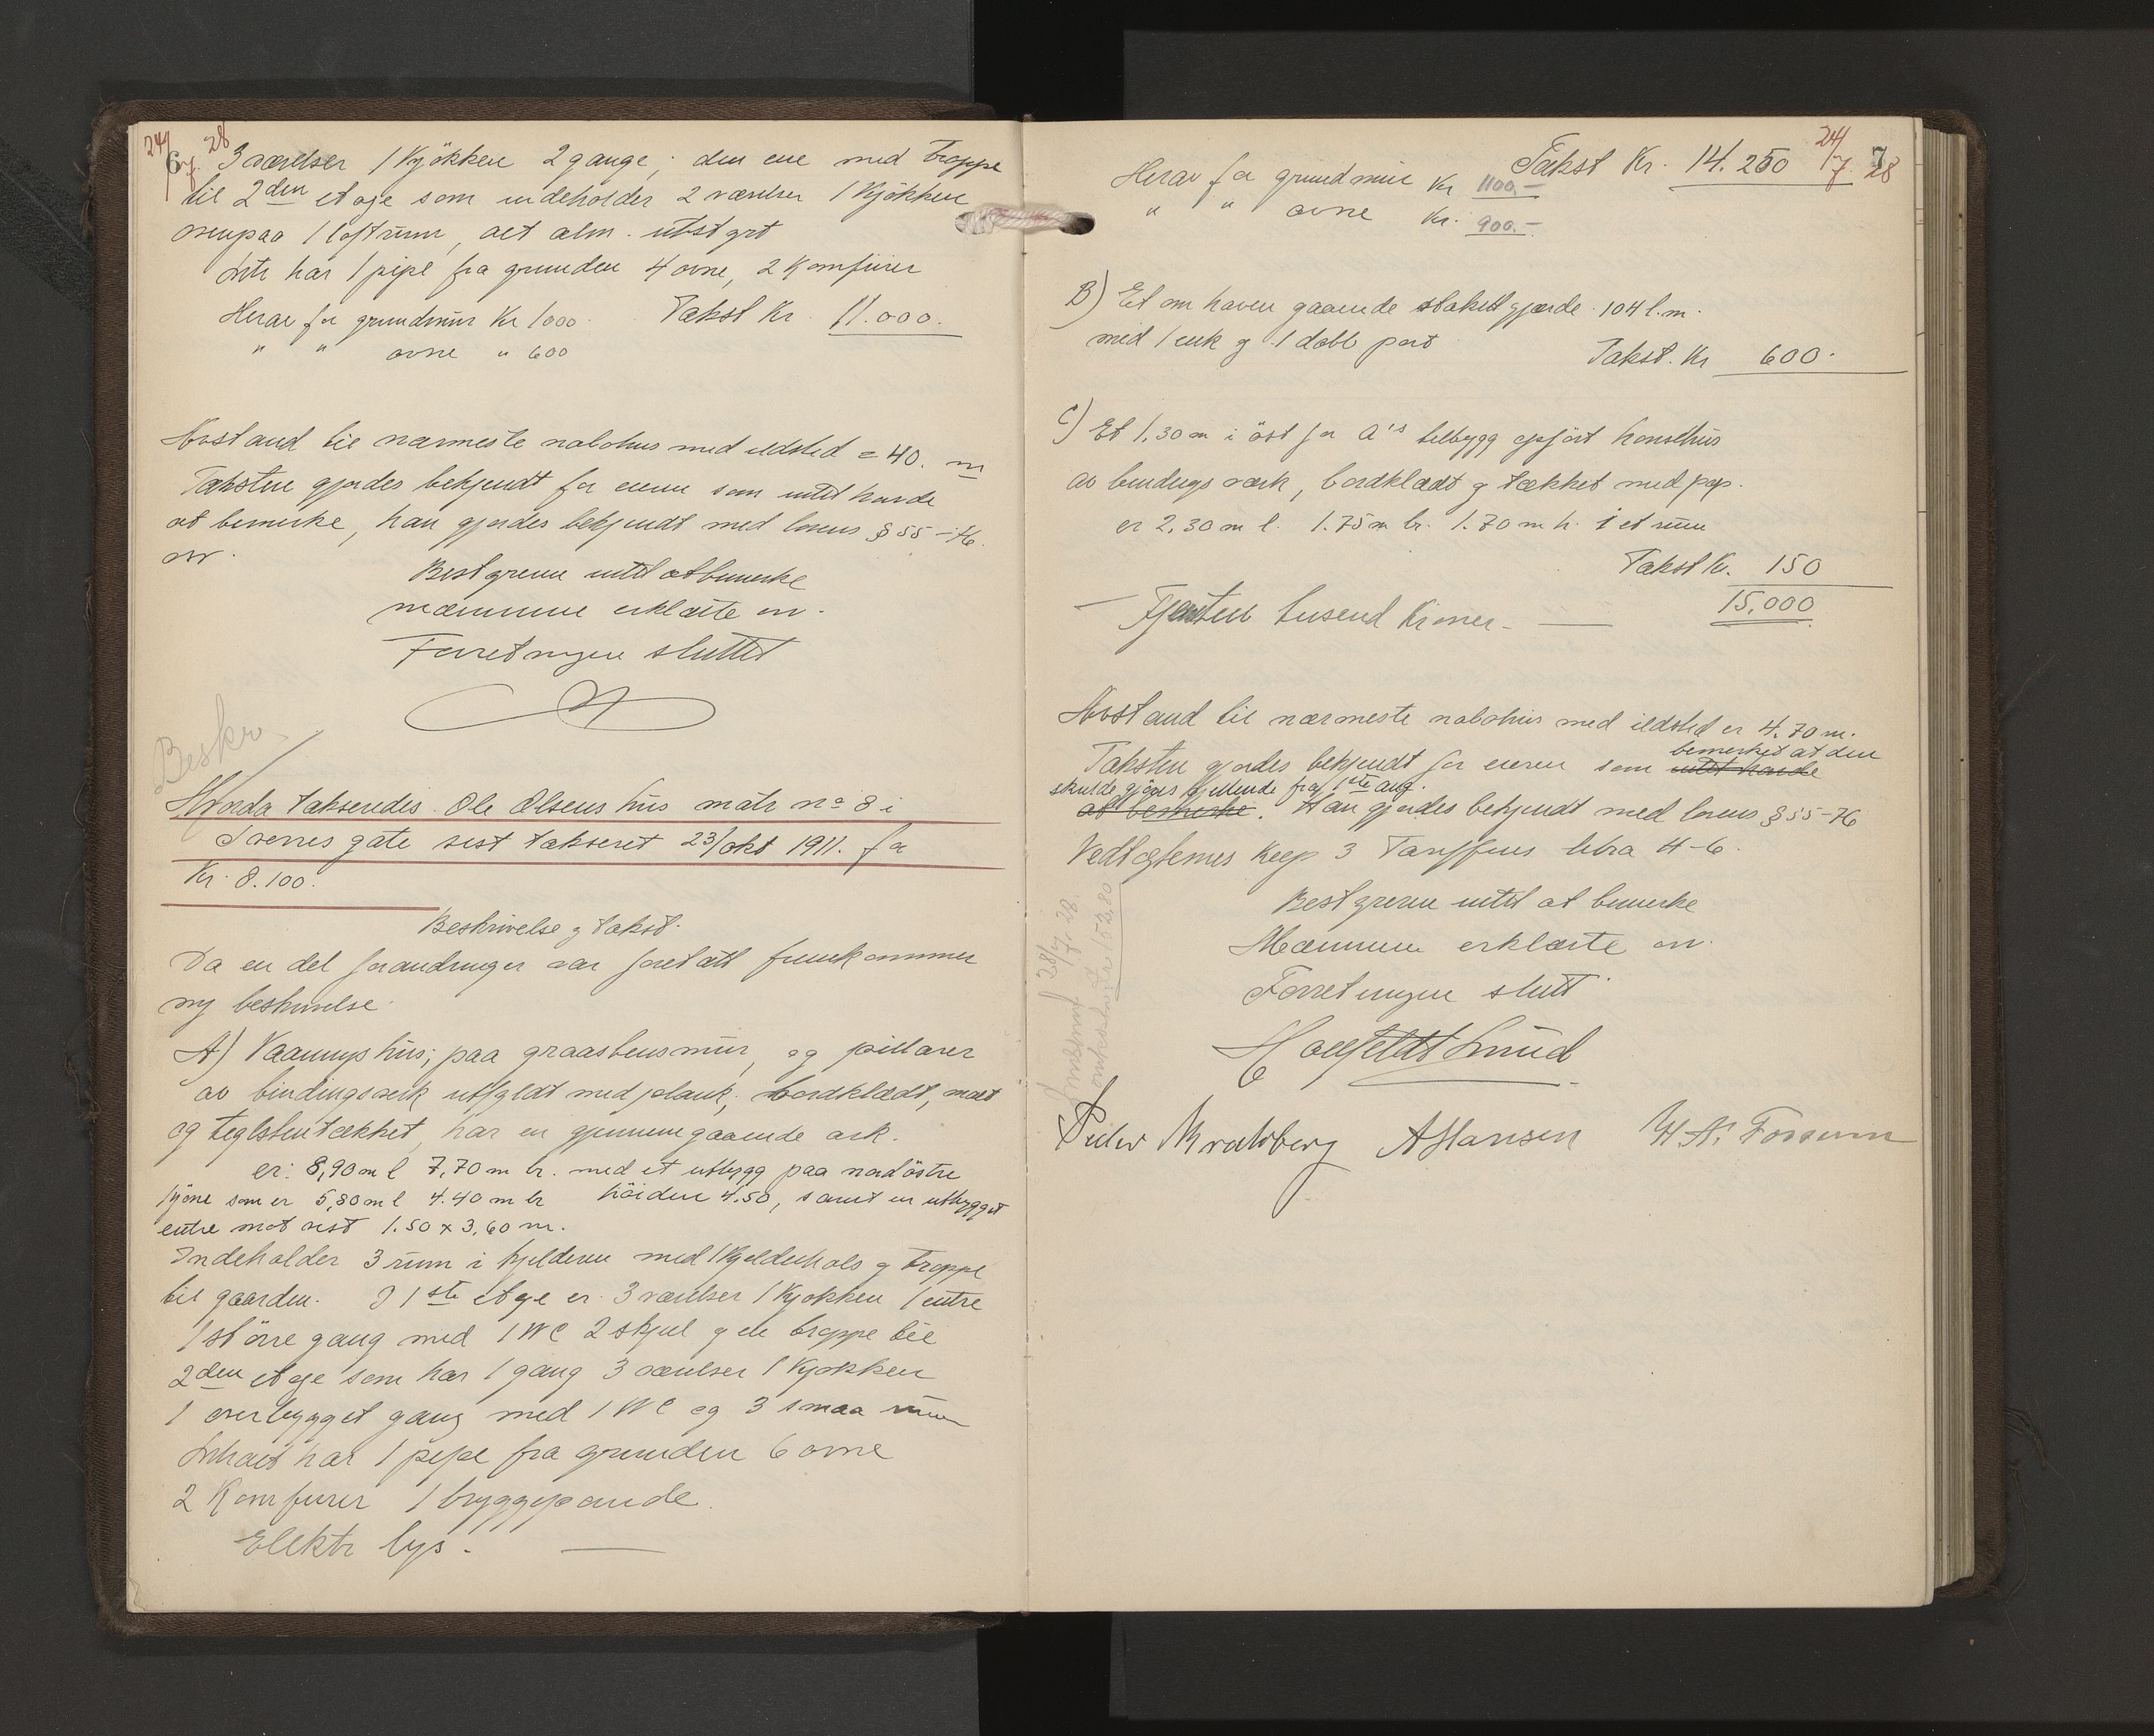 24/7. 28
6
3 værelser 1 Kjøkken 2 gange; den ene med Trappe
til 2den etage som indeholder 2 værelser 1 Kjøkken
ovenpaa 1 loftrum, alt alm. utstyrt
har 1 pipe fra grunden 4 ovne, 2 Komfurer
Herav for grundmur Kr 1000. Takst Kr. 11.000.
" " ovne " 600
Avstand til nærmeste nabohus med ildsted = 40. m
Taksten gjordes bekjendt for eieren som intet havde
at bemerke, han gjordes bekjendt med lovens § 55-76.
Bestyreren intet at bemerke
mændene erklærte
Forretningen sluttet
Beskr.
takserdis. Ole Olsens hus matr no 8 i
Sverres gate sist takseret 23/okt 1911. for
Kr. 8.100.
Beskrivelse og takst.
Da en del forandringer var foretatt fremkommer
ny beskrivelse.
A) Vaaningshus; paa graastensmur, og pillarer
av bindingsverk utfyldt med plank, bordklædt, malt
og teglstentækket, har en gjennemgaaende ark.
er: 8,90 m l 7,70 m br. med et utbygg paa nordöstre
hjörne som er 5,80 m l 4.40 m br höiden 4.50, samt en utbygget
entre mot vest 1.50 x 3,60 m.
Indeholder 3 rum i kjelderen med 1 Kjelderhals og Trappe
til gaarden. I 1ste etage er 3 værelser 1 Kjøkken 1 entre
1 större gang med 1 WC 2 skjul og en trappe til
2den etage som har 1 gang 3 værelser 1 Kjøkken
1 overbygget gang med 1 WC og 3 smaa rum
har 1 pipe fra grunden 6 ovne
2 Komfurer 1 bryggepande.
Elektr lys. —
24/7. 28
7
Takst Kr. 14.250
Herav for grundmur Kr 1100.-
" " ovne Kr. 900.-
B) Et om haven gaaende stakittgjærde 104 l.m.
med 1 enk og 1 dobb port
Takst. Kr 600.
C) Et 1,30 m i öst for A's tilbygg opfört hønsehus
av bindingsverk, bordklædt og tækket med pap.
er 2,30 m l. 1.75 m br. 1.70 m h. i et rum
Takst Kr. 150
15.000
— Femten tusend Kroner. —
Avstand til nærmeste nabohus med ildsted er 4.70 m.
Taksten gjordes bekjendt for eieren som intet havde bemerket at den
skulde gjöres gjellende fra 1ste aug.
at bemerke. Han gjordes bekjendt med lovens § 55-76
Vedtægternes Kap 3 Tariffens litra H-6.
Bestyreren intet at bemerke
Mændene erklærte
Forretningen slutt
28/7. 28.
Kr 153.80
Hallfeldt Lund
Peder Bratsberg A Hansen H. N. Fossum